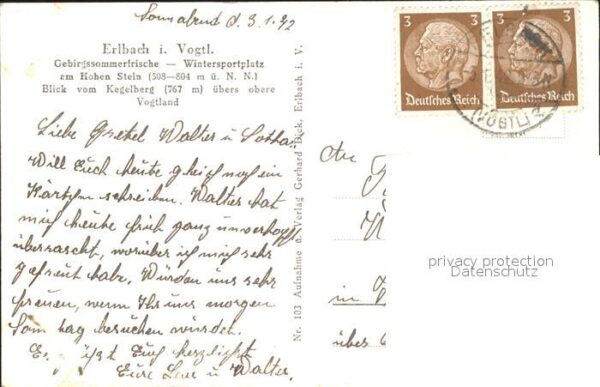 Sonnabend d. 3.1.42
Erlbach i. Vogtl.
Gebirgssommerfrische — Wintersportplatz
am Hohen Stein (508—804 m ü. N. N.)
Blick vom Kegelberg (767 m) übers obere
Vogtland
Liebe Gretel Walter u Lotha
Will Euch heute gleich noch ein
Kärtchen schreiben. Walter hat
mich heute früh ganz unverhofft
überrascht, worüber ich mich sehr
gefreut habe. Würden uns sehr
freuen, wenn Ihr uns morgen
Sonntag besuchen würdet.
Es grüßt Euch herzlichst
Eure Lene u Walter.
Nr. 103 Aufnahme u. Verlag Gerhard Dick, Erlbach i. V.
3 3
Deutsches Reich Deutsches Reich
(VOGTL)
An
in
über
privacy protection
Datenschutz